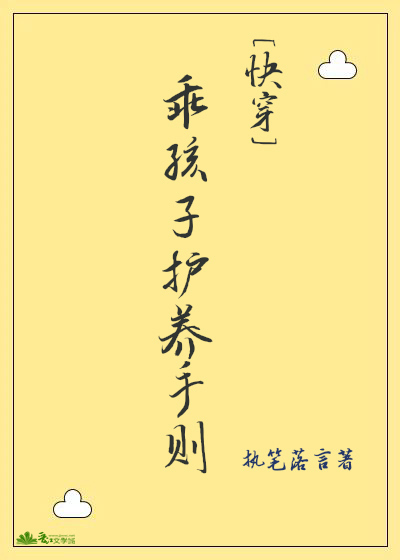 [快穿]
乖孩子护养手则
执笔落言著
晋江文学城